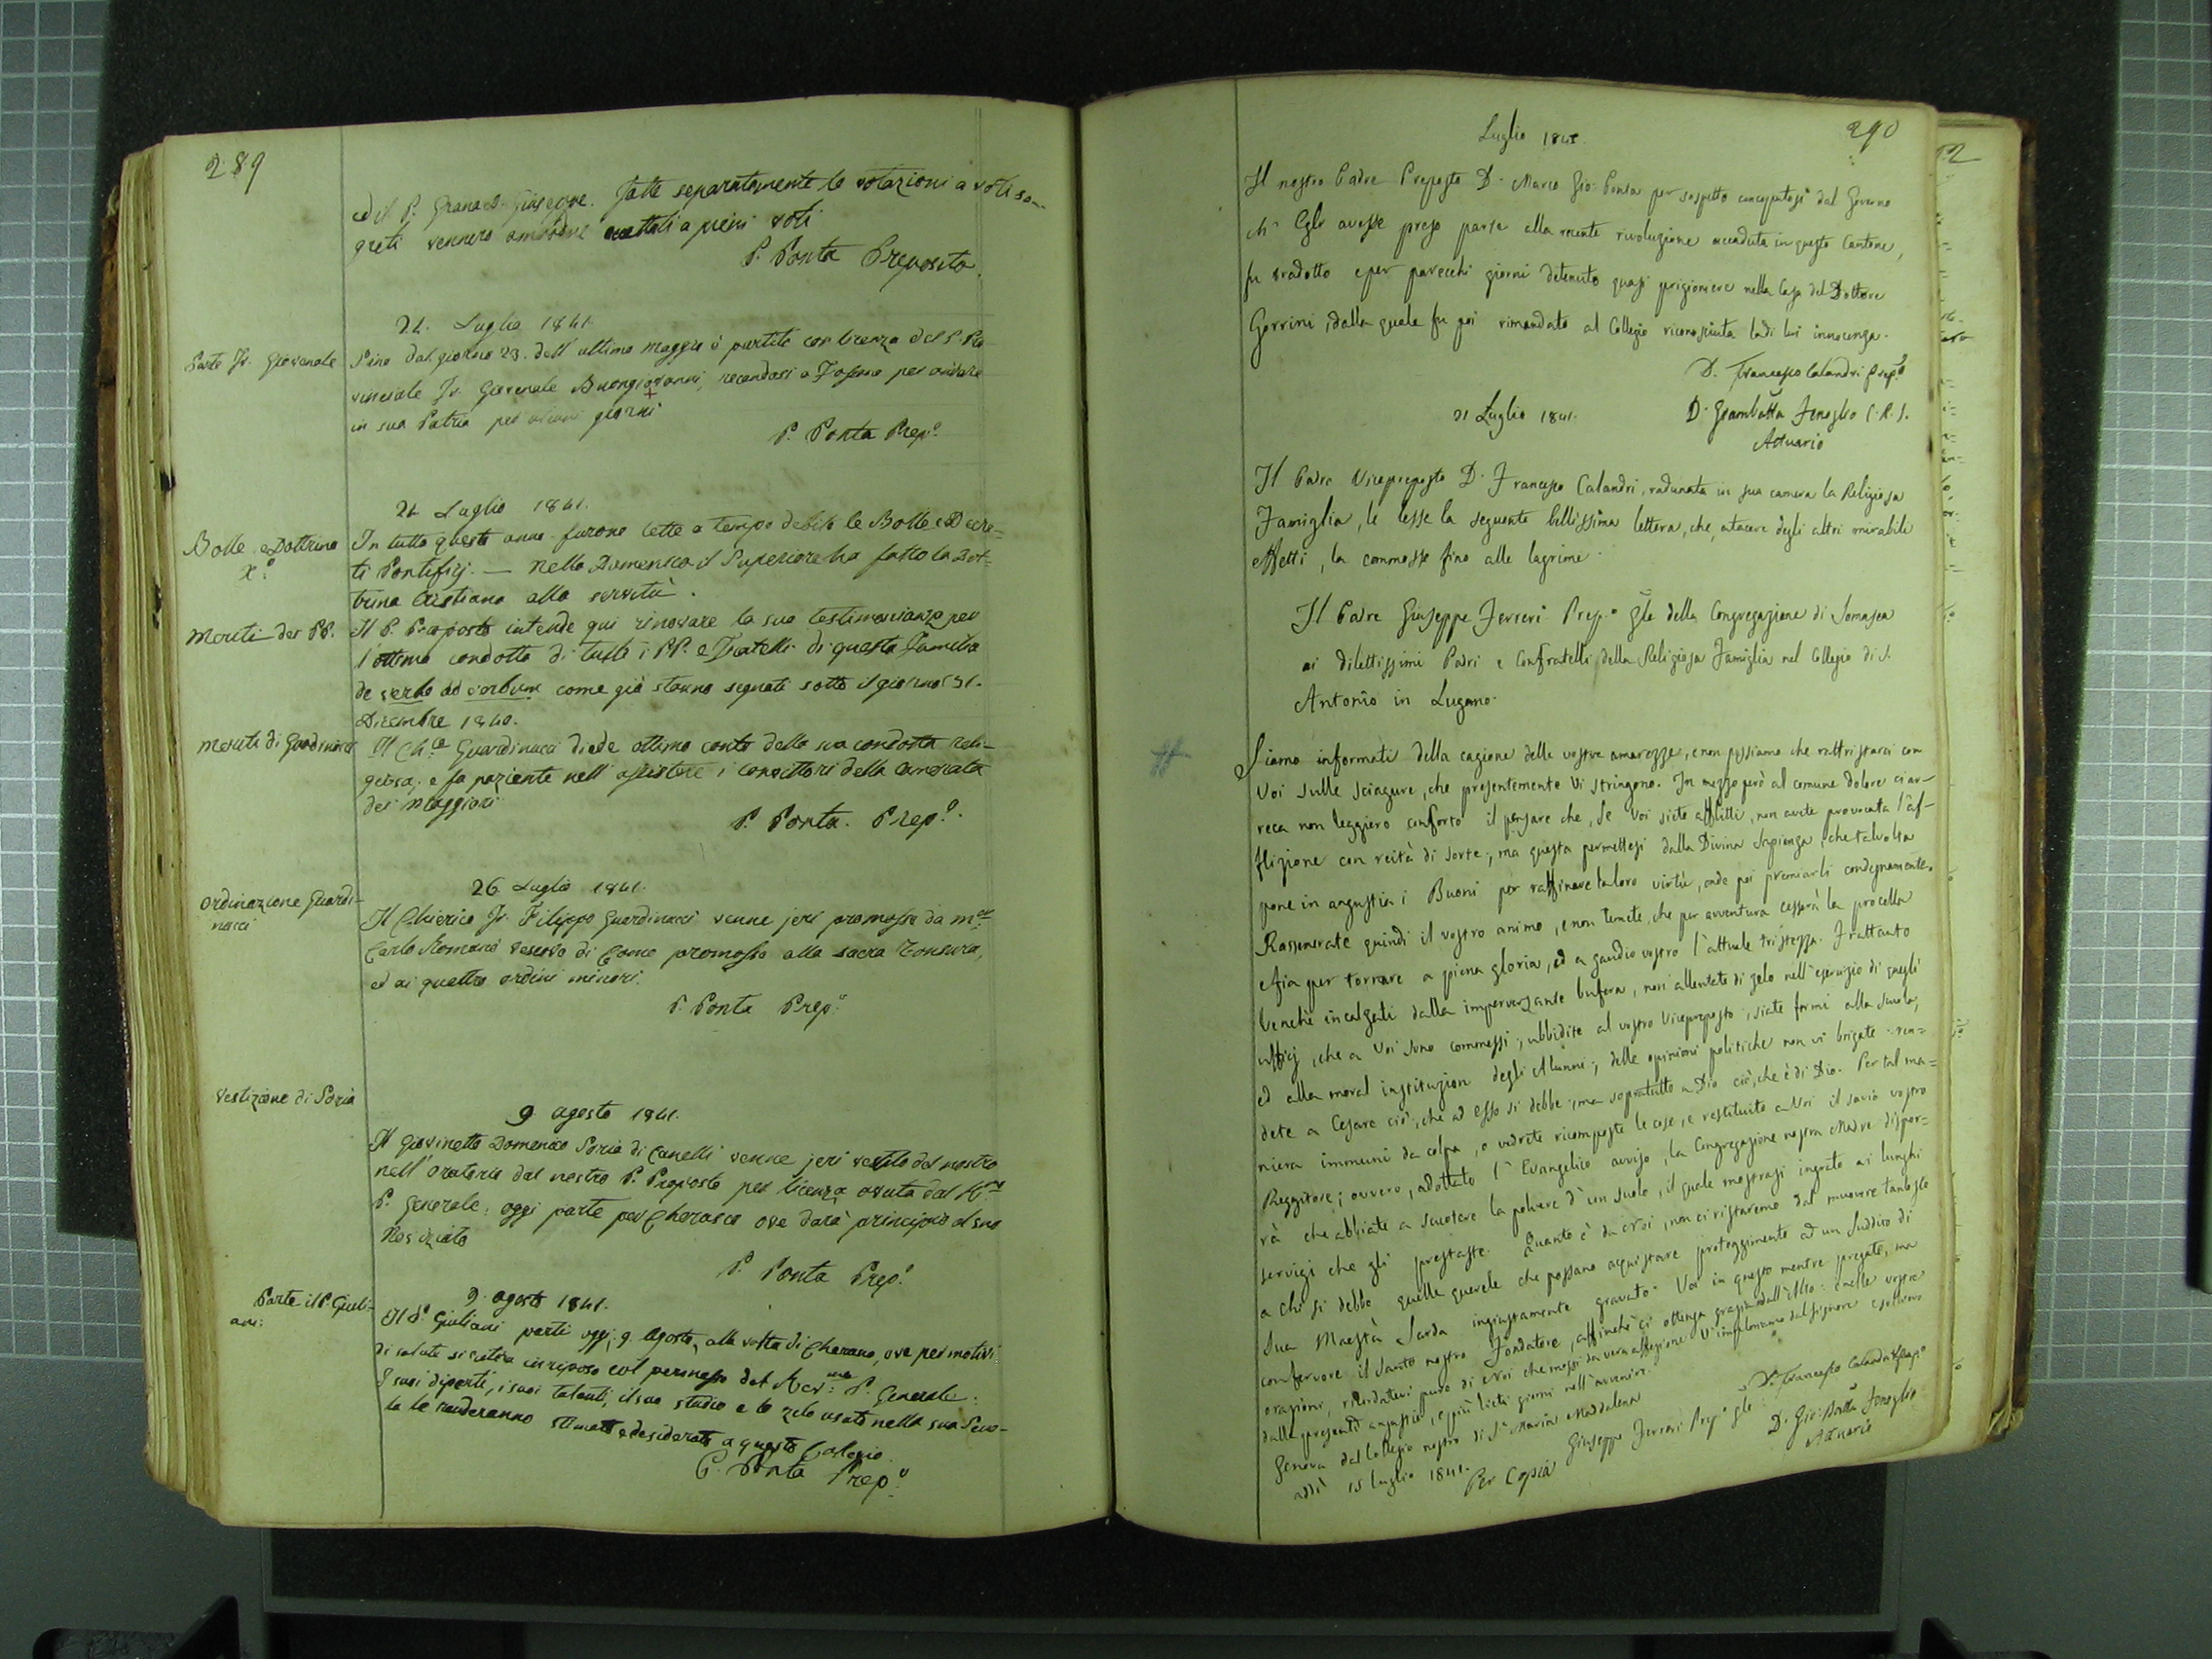 289
ed il P. Grana D. Giuseppe. Fatte separatamente le votazioni a voti se-
greti vennero ambidue accettati a pieni voti
P. Ponta Preposito.
21. Luglio 1841.
Parte Fr. Giovenale
Sino dal giorno 23. dell'ultimo maggio è partito con licenza del P. Pro
vinciale Fr. Giovenale Buongiovanni, recandosi a Fossano per andare
in sua Patria per alcuni giorni
P. Ponta Prep.o
21 Luglio 1841.
Bolle e Dottrina
X.a
In tutto questo anno furono lette a tempo debito le Bolle e Decre-
ti Pontificj. — Nelle Domeniche il Superiore ha fatto la Dot-
trina Cristiana alla servitù.
Meriti dei PP.
Il P. Preposto intende qui rinovare la sua testimonianza per
l'ottima condotta di tutti i PP. e Fratelli di questa Famiglia
de verbo ad verbum come già stanno segnati sotto il giorno 31.
Dicembre 1840.
Meriti di Guardinacci
Il Ch.co Guardinacci diede ottimo conto della sua condotta reli-
giosa; e fa paziente nell'assistere i convittori della Camerata
dei Maggiori
P. Ponta. Prep.o
26 Luglio 1841.
Ordinazione Guardi-
nacci
Il Chierico Fr. Filippo Guardinacci venne jeri promosso da m.r
Carlo Romanò Vescovo di Como promosso alla sacra Tonsura,
ed ai quattro ordini minori.
P. Ponta Prep.o
Vestizione di Soria
9 agosto 1841.
Il Giovinetto Domenico Soria di Canelli venne jeri vestito dal nostro
nell'Oratorio dal nostro P. Preposto per licenza avuta dal R.mo
P. Generale; oggi parte per Cherasco ove darà principio al suo
Noviziato
P. Ponta Prep.o
Parte il P. Giuli-
ani:
9. agosto 1841.
Il P. Giuliani partì oggi, 9 Agosto, alla volta di Cherasco, ove per motivi
di salute si ritira in riposo col permesso del Rev.mo P. Generale:
I suoi diporti, i suoi talenti, il suo studio e lo zelo usato nella sua Scuo-
la le renderanno stimato e desiderato a questo Collegio.
P. Ponta Prep.o
Luglio 1841.
290
Il nostro Padre Preposto D. Marco Gio: Ponta per sospetto concepitosi dal Governo
ch'Egli avesse preso parte alla recente rivoluzione accaduta in questo Cantone,
fu tradotto e per parecchi giorni detenuto quasi prigioniere nella Casa del Dottore
Gorrini, dalla quale fu poi rimandato al Collegio riconosciuta la di lui innocenza.
D. Francesco Calandri Prep.o
21 Luglio 1841.
D. Giambatta Fenoglio C.R.S.
Attuario
Il Padre Vicepreposto D. Francesco Calandri, radunata in sua camera la Religiosa
Famiglia, le lesse la seguente bellissima lettera, che, a tacere degli altri mirabili
effetti, la commosse fino alle lagrime.
Il Padre Giuseppe Ferreri Prep.o Gle della Congregazione di Somasca
ai dilettissimi Padri e Confratelli della Religiosa Famiglia nel Collegio di S.
Antonio in Lugano.
Siamo informati della cagione delle vostre amarezze, e non possiamo che rattristarci con
Voi sulle sciagure, che presentemente Vi stringono. In mezzo però al comune dolore ci ar-
reca non leggiero conforto il pensare che, se Voi siete afflitti, non avete provocata l'af-
flizione con reità di sorte; ma questa permettesi dalla Divina Sapienza, che talvolta
pone in angustia i Buoni per raffinare la loro virtù, onde poi premiarli condegnamente.
Rasserenate quindi il vostro animo, e non temete, che per avventura cesserà la procella
e fia per tornare a piena gloria, ed a gaudio vostro l'attuale tristezza. Frattanto
benchè incalzati dalla imperversante bufera, non allentate di zelo nell'esercizio di quegli
ufficj, che a Voi sono commessi; ubbidite al vostro Vicepreposto, siate fermi alla scuola,
ed alla moral instituzion degli Alunni; delle opinioni politiche non vi brigate: ren=
dete a Cesare ciò, che ad Esso si debbe; ma sopratutto a Dio ciò, che è di Dio. Per tal ma=
niera immuni da colpa, o vedrete ricomposte le cose, e restituito a Voi il savio vostro
Reggitore; ovvero, adottato l'Evangelico avviso, la Congregazione nostra Madre dispor=
rà che abbiate a scuotere la polvere d'un suolo, il quale mostrasi ingrato ai lunghi
servigi che gli prestaste. Quanto è da Noi, non ci ristaremo dal muovere tantosto
a chi si debbe quelle querele che possano acquistare proteggimento ad un Suddito di
Sua Maestà Sarda ingiustamente gravato. Voi in questo mentre pregate, ma
con fervore il Santo nostro Fondatore, affinchè ci ottenga grazia dall'Alto: e nelle vostre
orazioni, ricordatevi pure di Noi che mossi da vera affezione Vi imploriamo dal Signore sollievo
dalle presenti angustie, e più lieti giorni nell'avvenire.
Genova dal Collegio nostro di S.a Maria Maddalena
addì 15 luglio 1841.
Giuseppe Ferreri Prep.o Gle
Per Copia
D. Francesco Calandri Prep.o
D. Gio: Batta Fenoglio
Attuario